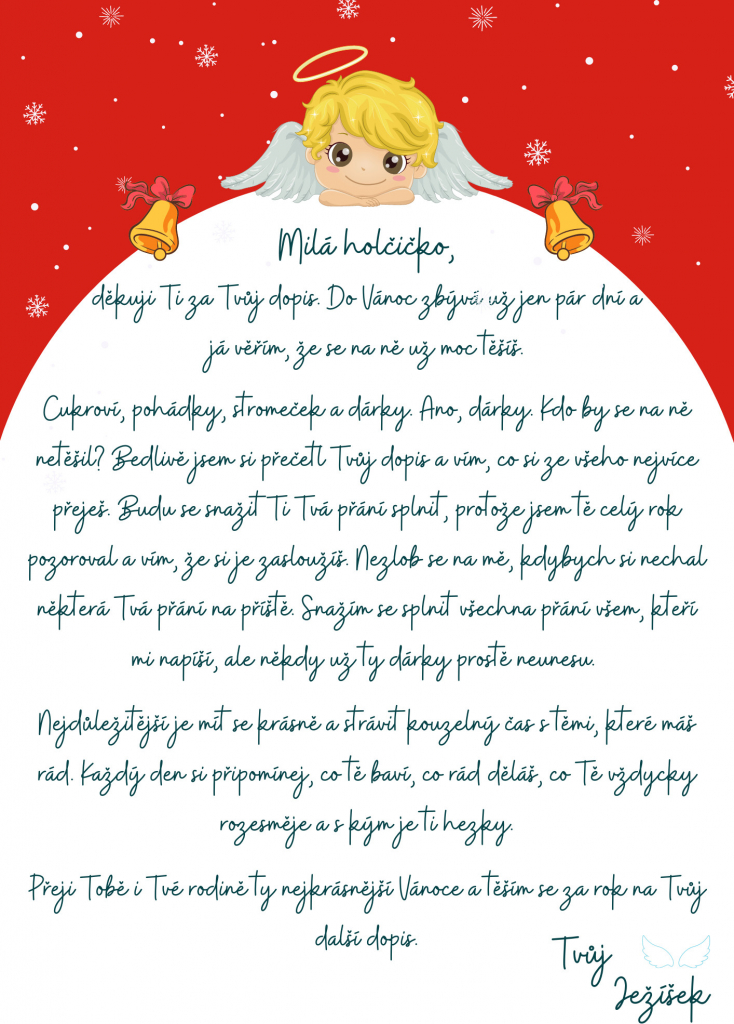 Milá holčičko,
děkuji Ti za Tvůj dopis. Do Vánoc zbývá už jen pár dní a
já věřím, že se na ně už moc těšíš.
Cukroví, pohádky, stromeček a dárky. Ano, dárky. Kdo by se na ně
netěšil? Bedlivě jsem si přečetl Tvůj dopis a vím, co si ze všeho nejvíce
přeješ. Budu se snažit Ti Tvá přání splnit, protože jsem tě celý rok
pozoroval a vím, že si je zasloužíš. Nezlob se na mě, kdybych si nechal
některá Tvá přání na příště. Snažím se splnit všechna přání všem, kteří
mi napíší, ale někdy už ty dárky prostě neunesu.
Nejdůležitější je mít se krásně a strávit kouzelný čas s těmi, které máš
rád. Každý den si připomínej, co tě baví, co rád děláš, co Tě vždycky
rozesměje a s kým je ti hezky.
Přeji Tobě i Tvé rodině ty nejkrásnější Vánoce a těším se za rok na Tvůj
další dopis.
Tvůj
Ježíšek